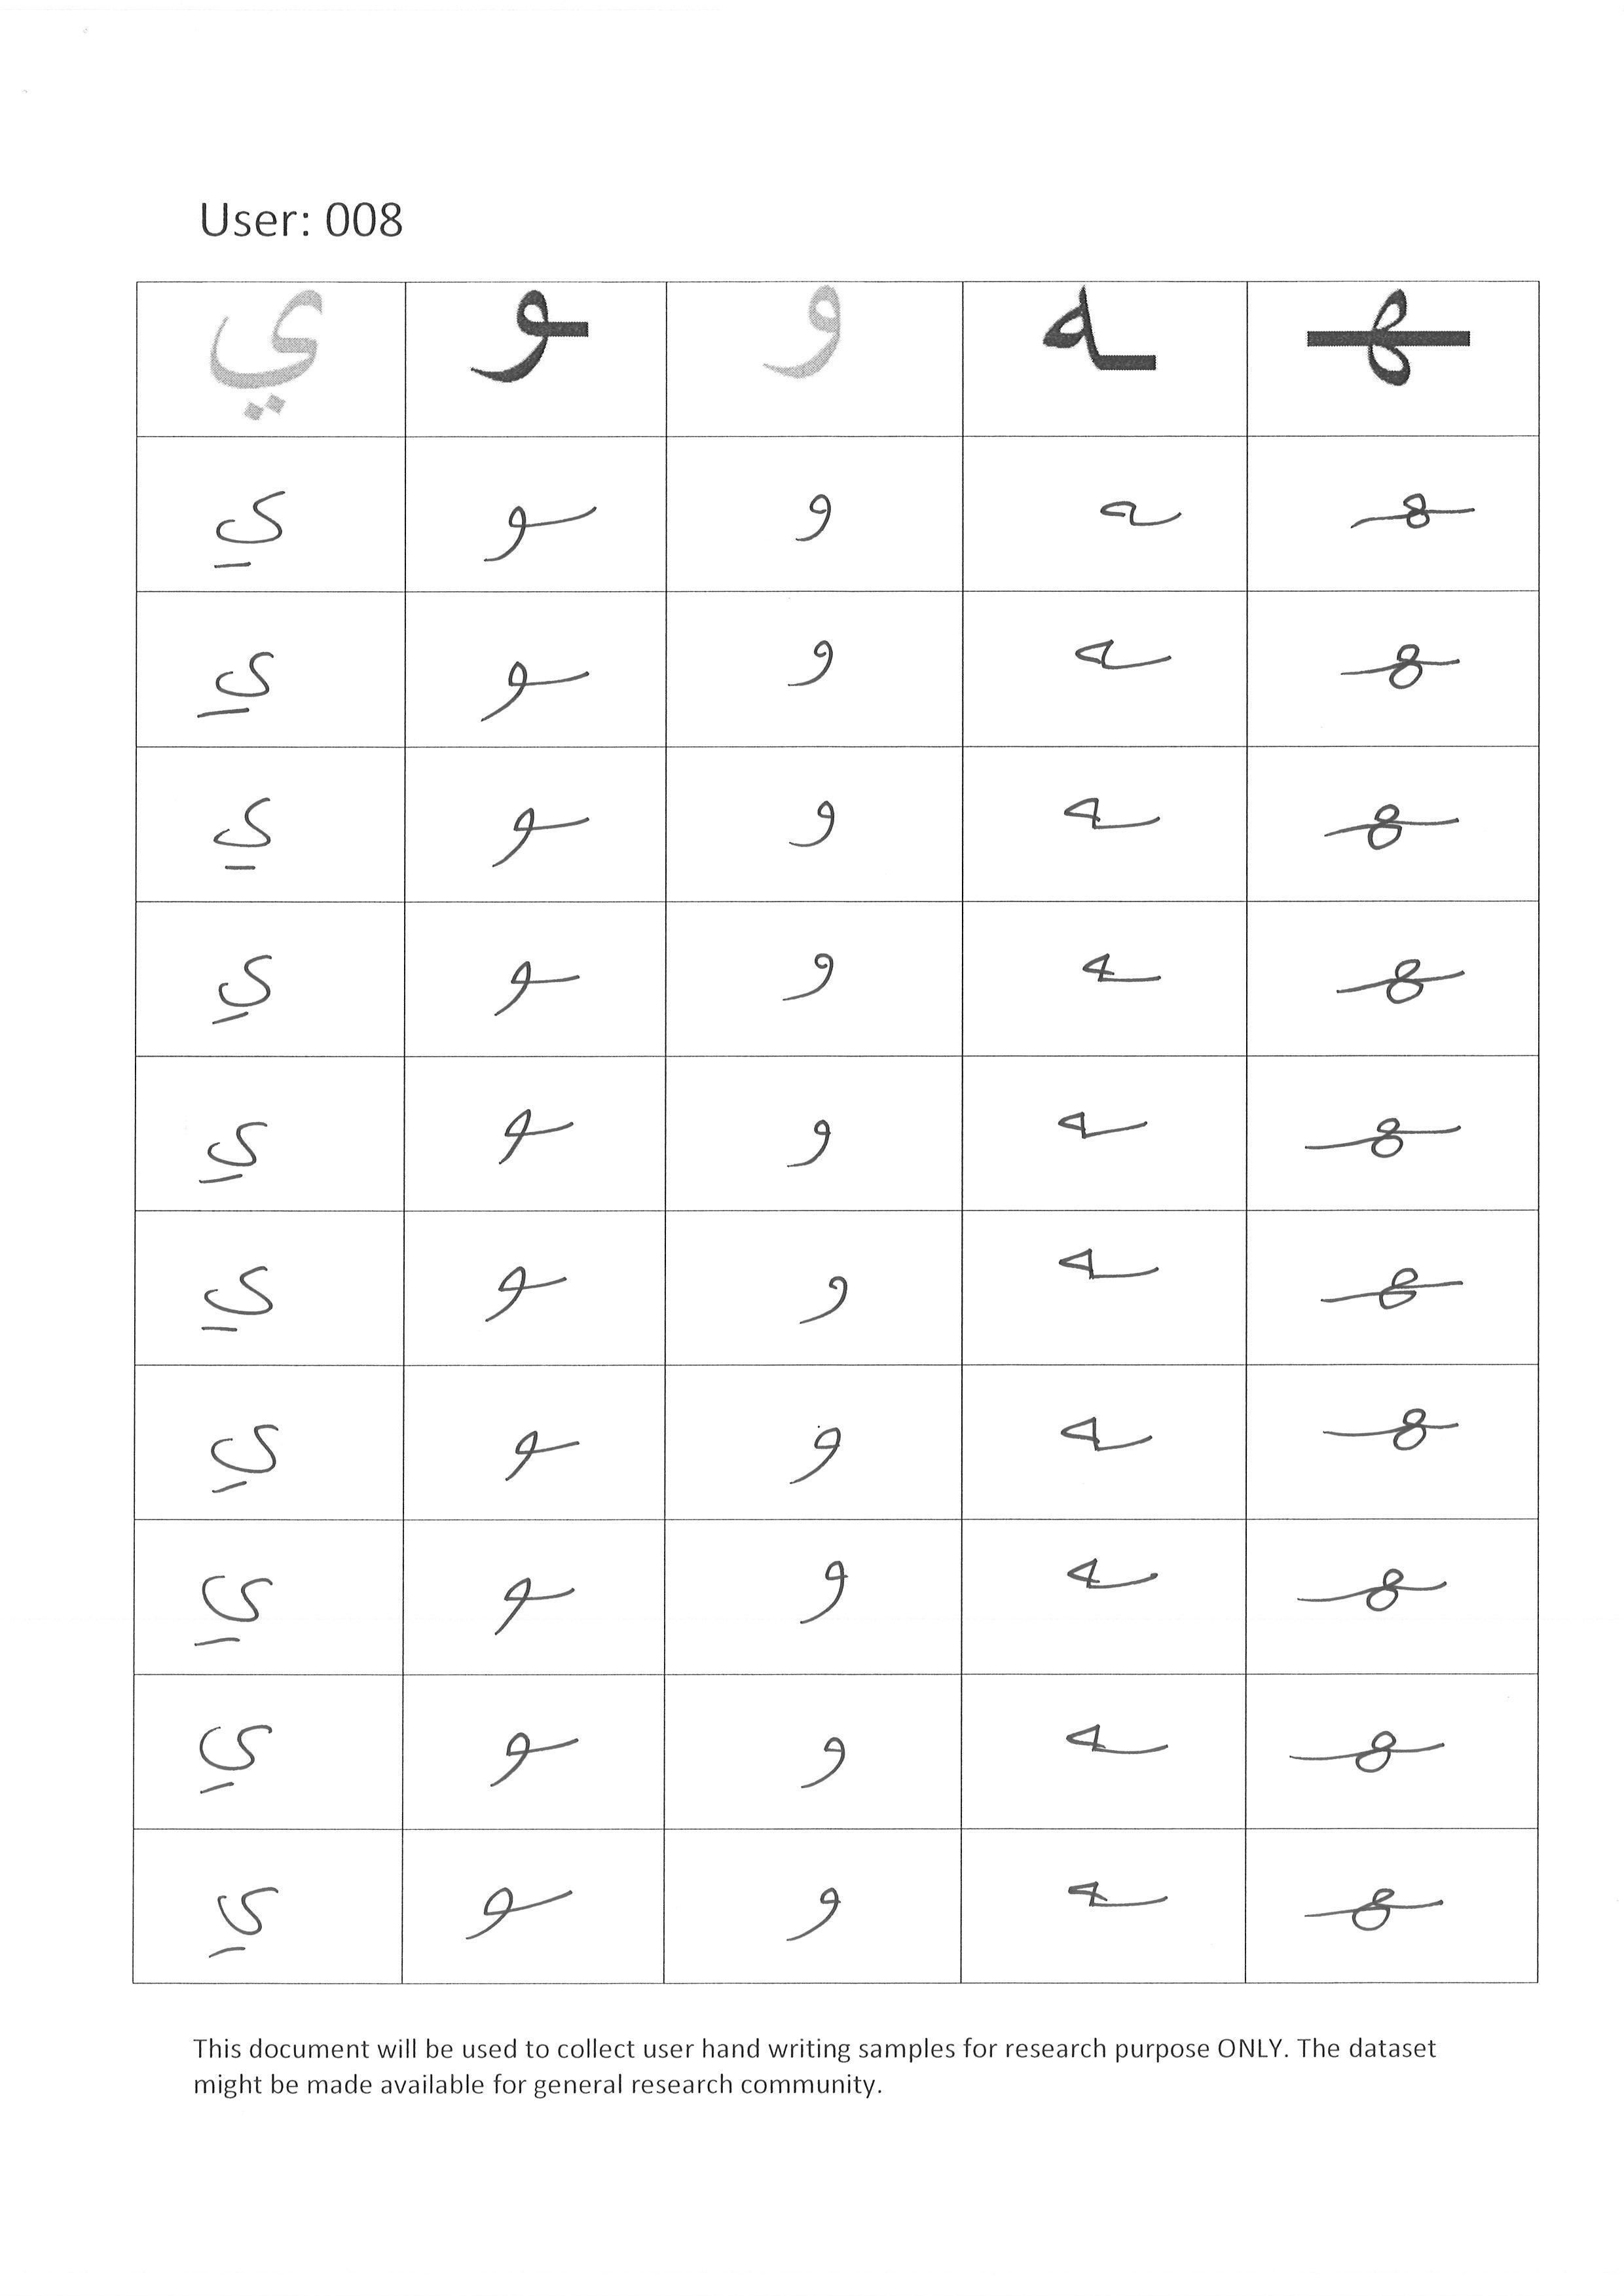 User: 008
ي ـو و ـه ـهـ
ي ـو و ـه ـهـ
ي ـو و ـه ـهـ
ي ـو و ـه ـهـ
ي ـو و ـه ـهـ
ي ـو و ـه ـهـ
ي ـو و ـه ـهـ
ي ـو و ـه ـهـ
ي ـو و ـه ـهـ
ي ـو و ـه ـهـ
ي ـو و ـه ـهـ
This document will be used to collect user hand writing samples for research purpose ONLY. The dataset
might be made available for general research community.